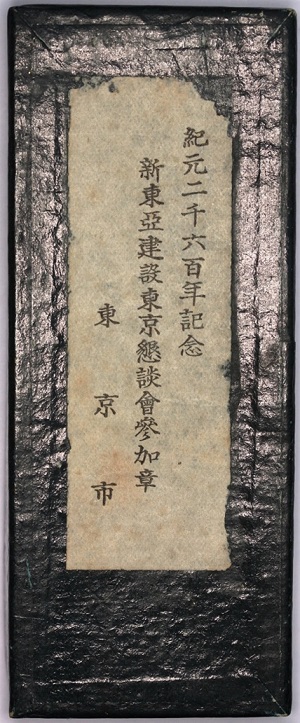 紀元二千六百年記念
新東亞建設東京懇談會參加章
東京市